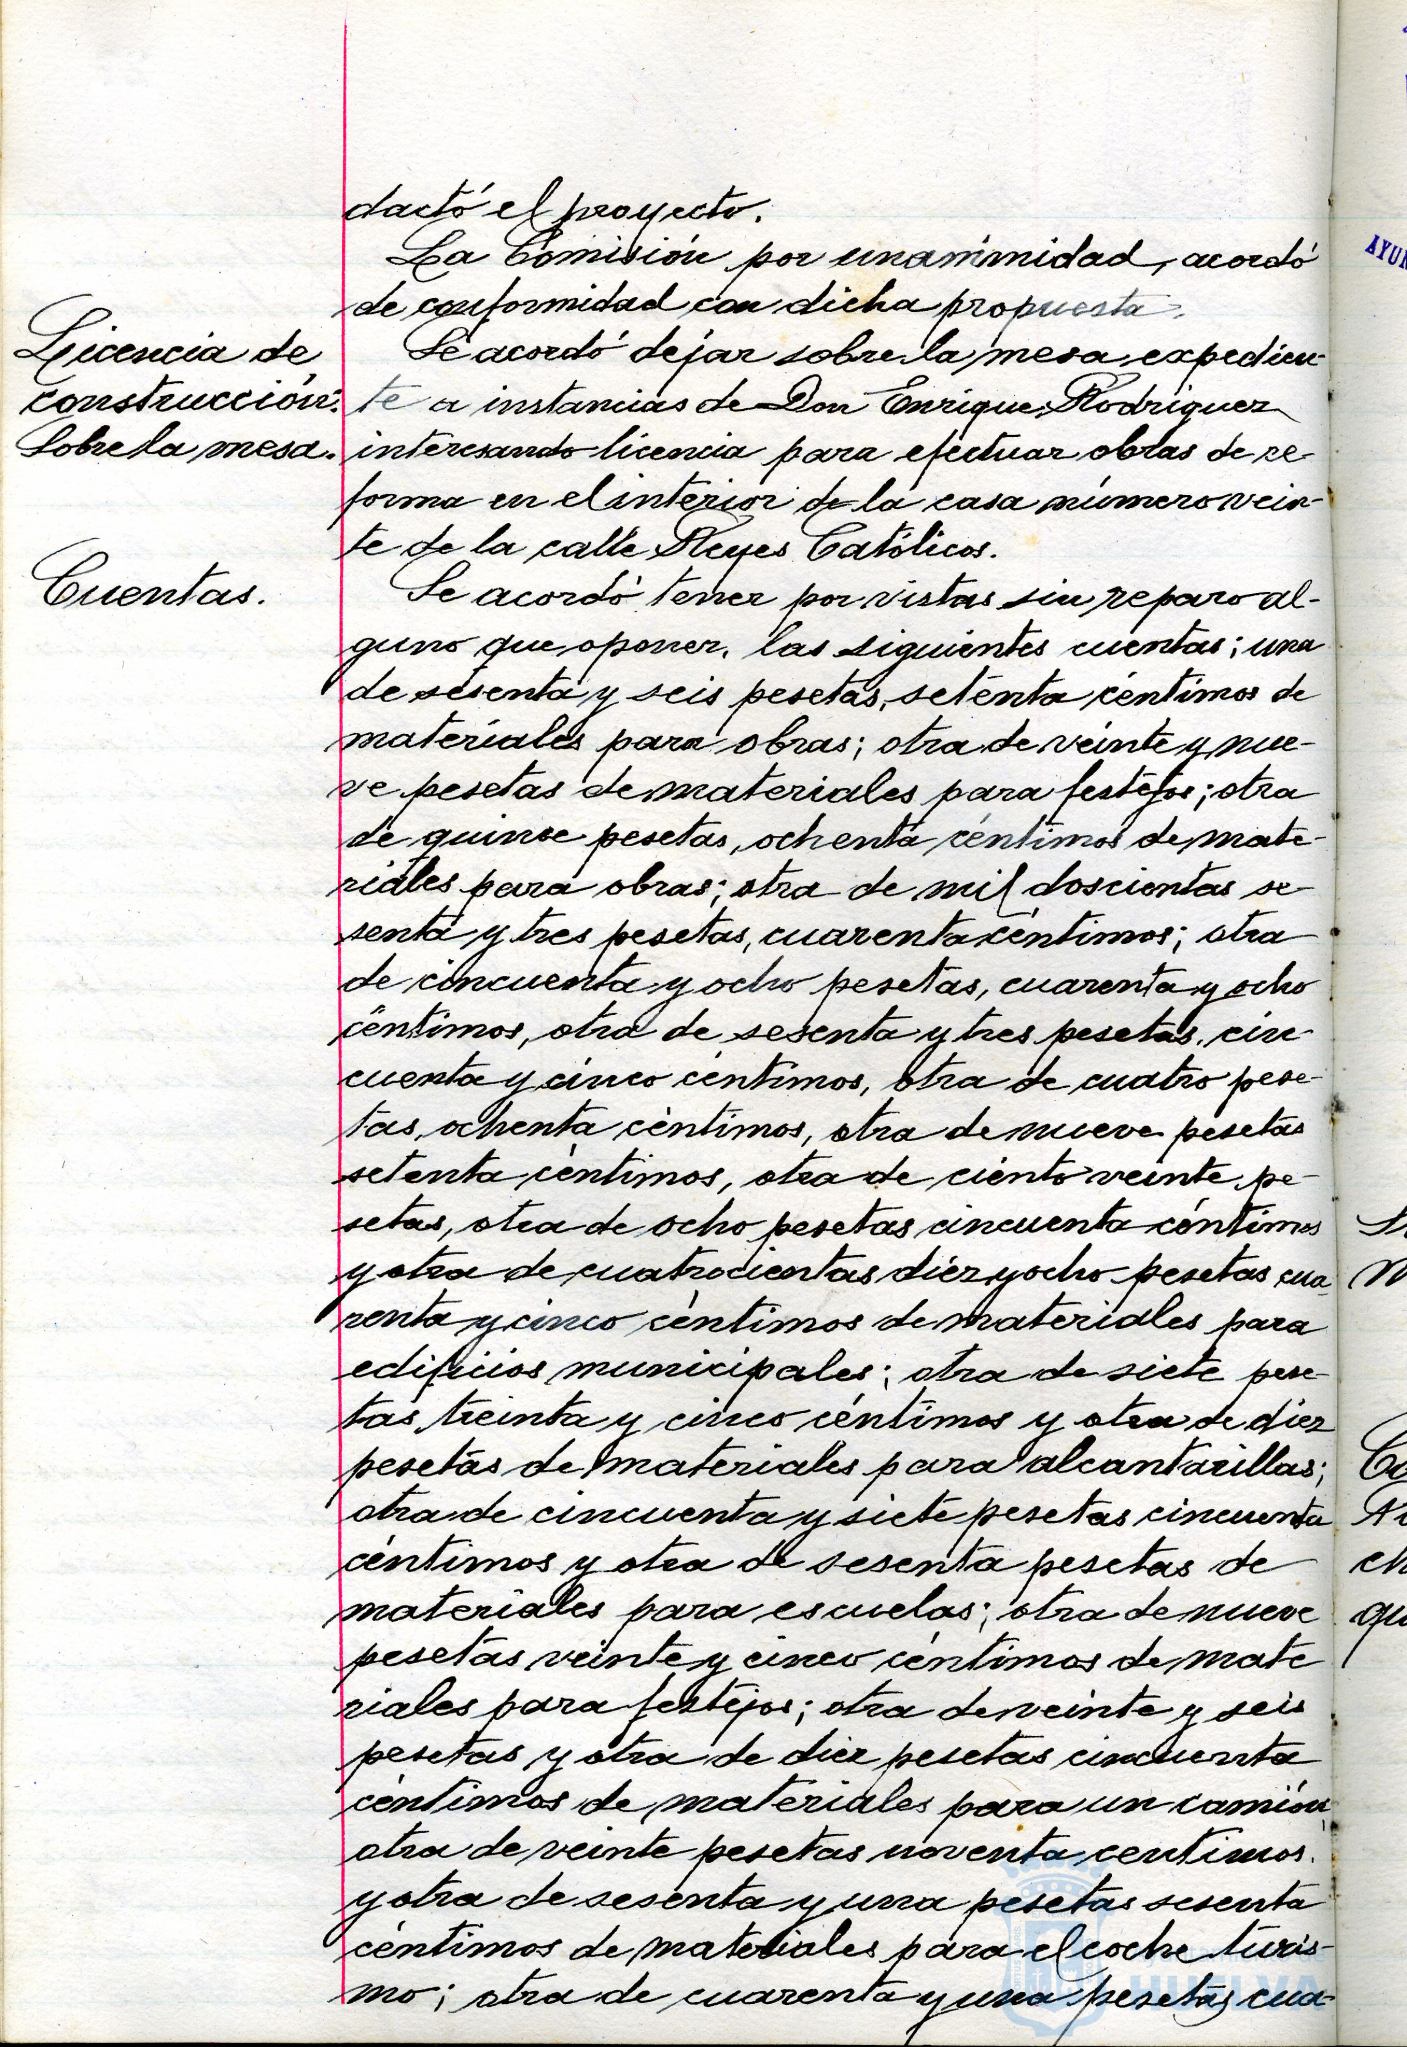 dactó el proyecto.
La Comisión por unanimidad, acordó
de conformidad con dicha propuesta.
Licencia de
construcción.
Sobre la mesa.
Se acordó dejar sobre la mesa expedien-
te a instancias de Don Enrique Rodriguez
interesando licencia para efectuar obras de re-
forma en el interior de la casa número vein-
te de la calle Reyes Católicos.
Cuentas.
Se acordó tener por vistas sin reparo al-
guno que oponer, las siguientes cuentas; una
de sesenta y seis pesetas, setenta céntimos de
materiales para obras; otra de veinte y nue-
ve pesetas de materiales para festejos; otra
de quince pesetas, ochenta céntimos de mate-
riales para obras; otra de mil doscientas se-
senta y tres pesetas, cuarenta céntimos; otra
de cincuenta y ocho pesetas, cuarenta y ocho
céntimos, otra de sesenta y tres pesetas, cin-
cuenta y cinco céntimos, otra de cuatro pese-
tas, ochenta céntimos, otra de nueve pesetas
setenta céntimos, otra de ciento veinte pe-
setas, otra de ocho pesetas cincuenta céntimos
y otra de cuatrocientas diez y ocho pesetas cua-
renta y cinco céntimos de materiales para
edificios municipales; otra de siete pese-
tas, treinta y cinco céntimos y otra de diez
pesetas de materiales para alcantarillas;
otra de cincuenta y siete pesetas cincuenta
céntimos y otra de sesenta pesetas de
materiales para escuelas; otra de nueve
pesetas veinte y cinco céntimos de mate
riales para festejos; otra de veinte y seis
pesetas y otra de diez pesetas cincuenta
céntimos de materiales para un camión,
otra de veinte pesetas noventa centimos.
y otra de sesenta y una pesetas sesenta
céntimos de materiales para el coche turis-
mo; otra de cuarenta y una pesetas cua-
HUELVA
AYUN